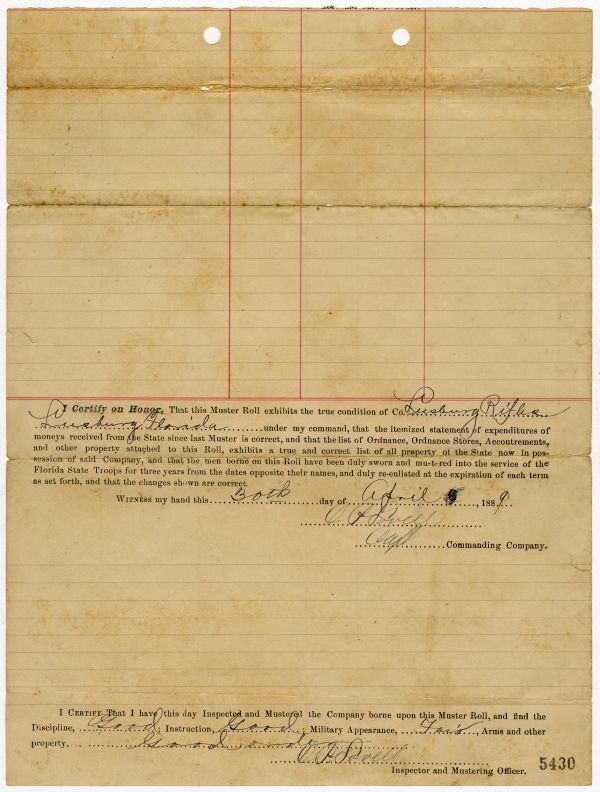 I Certify on Honor, That this Muster Roll exhibits the true condition of Co. Leesburg Rifles
Leesburg Florida under my command, that the itemized statement of expenditures of
moneys received from the State since last Muster is correct, and that the list of Ordnance, Ordnance Stores, Accoutrements,
and other property attached to this Roll, exhibits a true and correct list of all property of the State now in pos-
session of said Company, and that the men borne on this Roll have been duly sworn and mustered into the service of the
Florida State Troops for three years from the dates opposite their names, and duly re-enlisted at the expiration of each term
as set forth, and that the changes shown are correct.
WITNESS my hand this 30th day of April, 1889
Capt
Commanding Company.
I CERTIFY That I have this day Inspected and Mustered the Company borne upon this Muster Roll, and find the
Discipline, Good; Instruction, Good; Military Appearance, Fair, Arms and other
property, Good order
Inspector and Mustering Officer.
5430